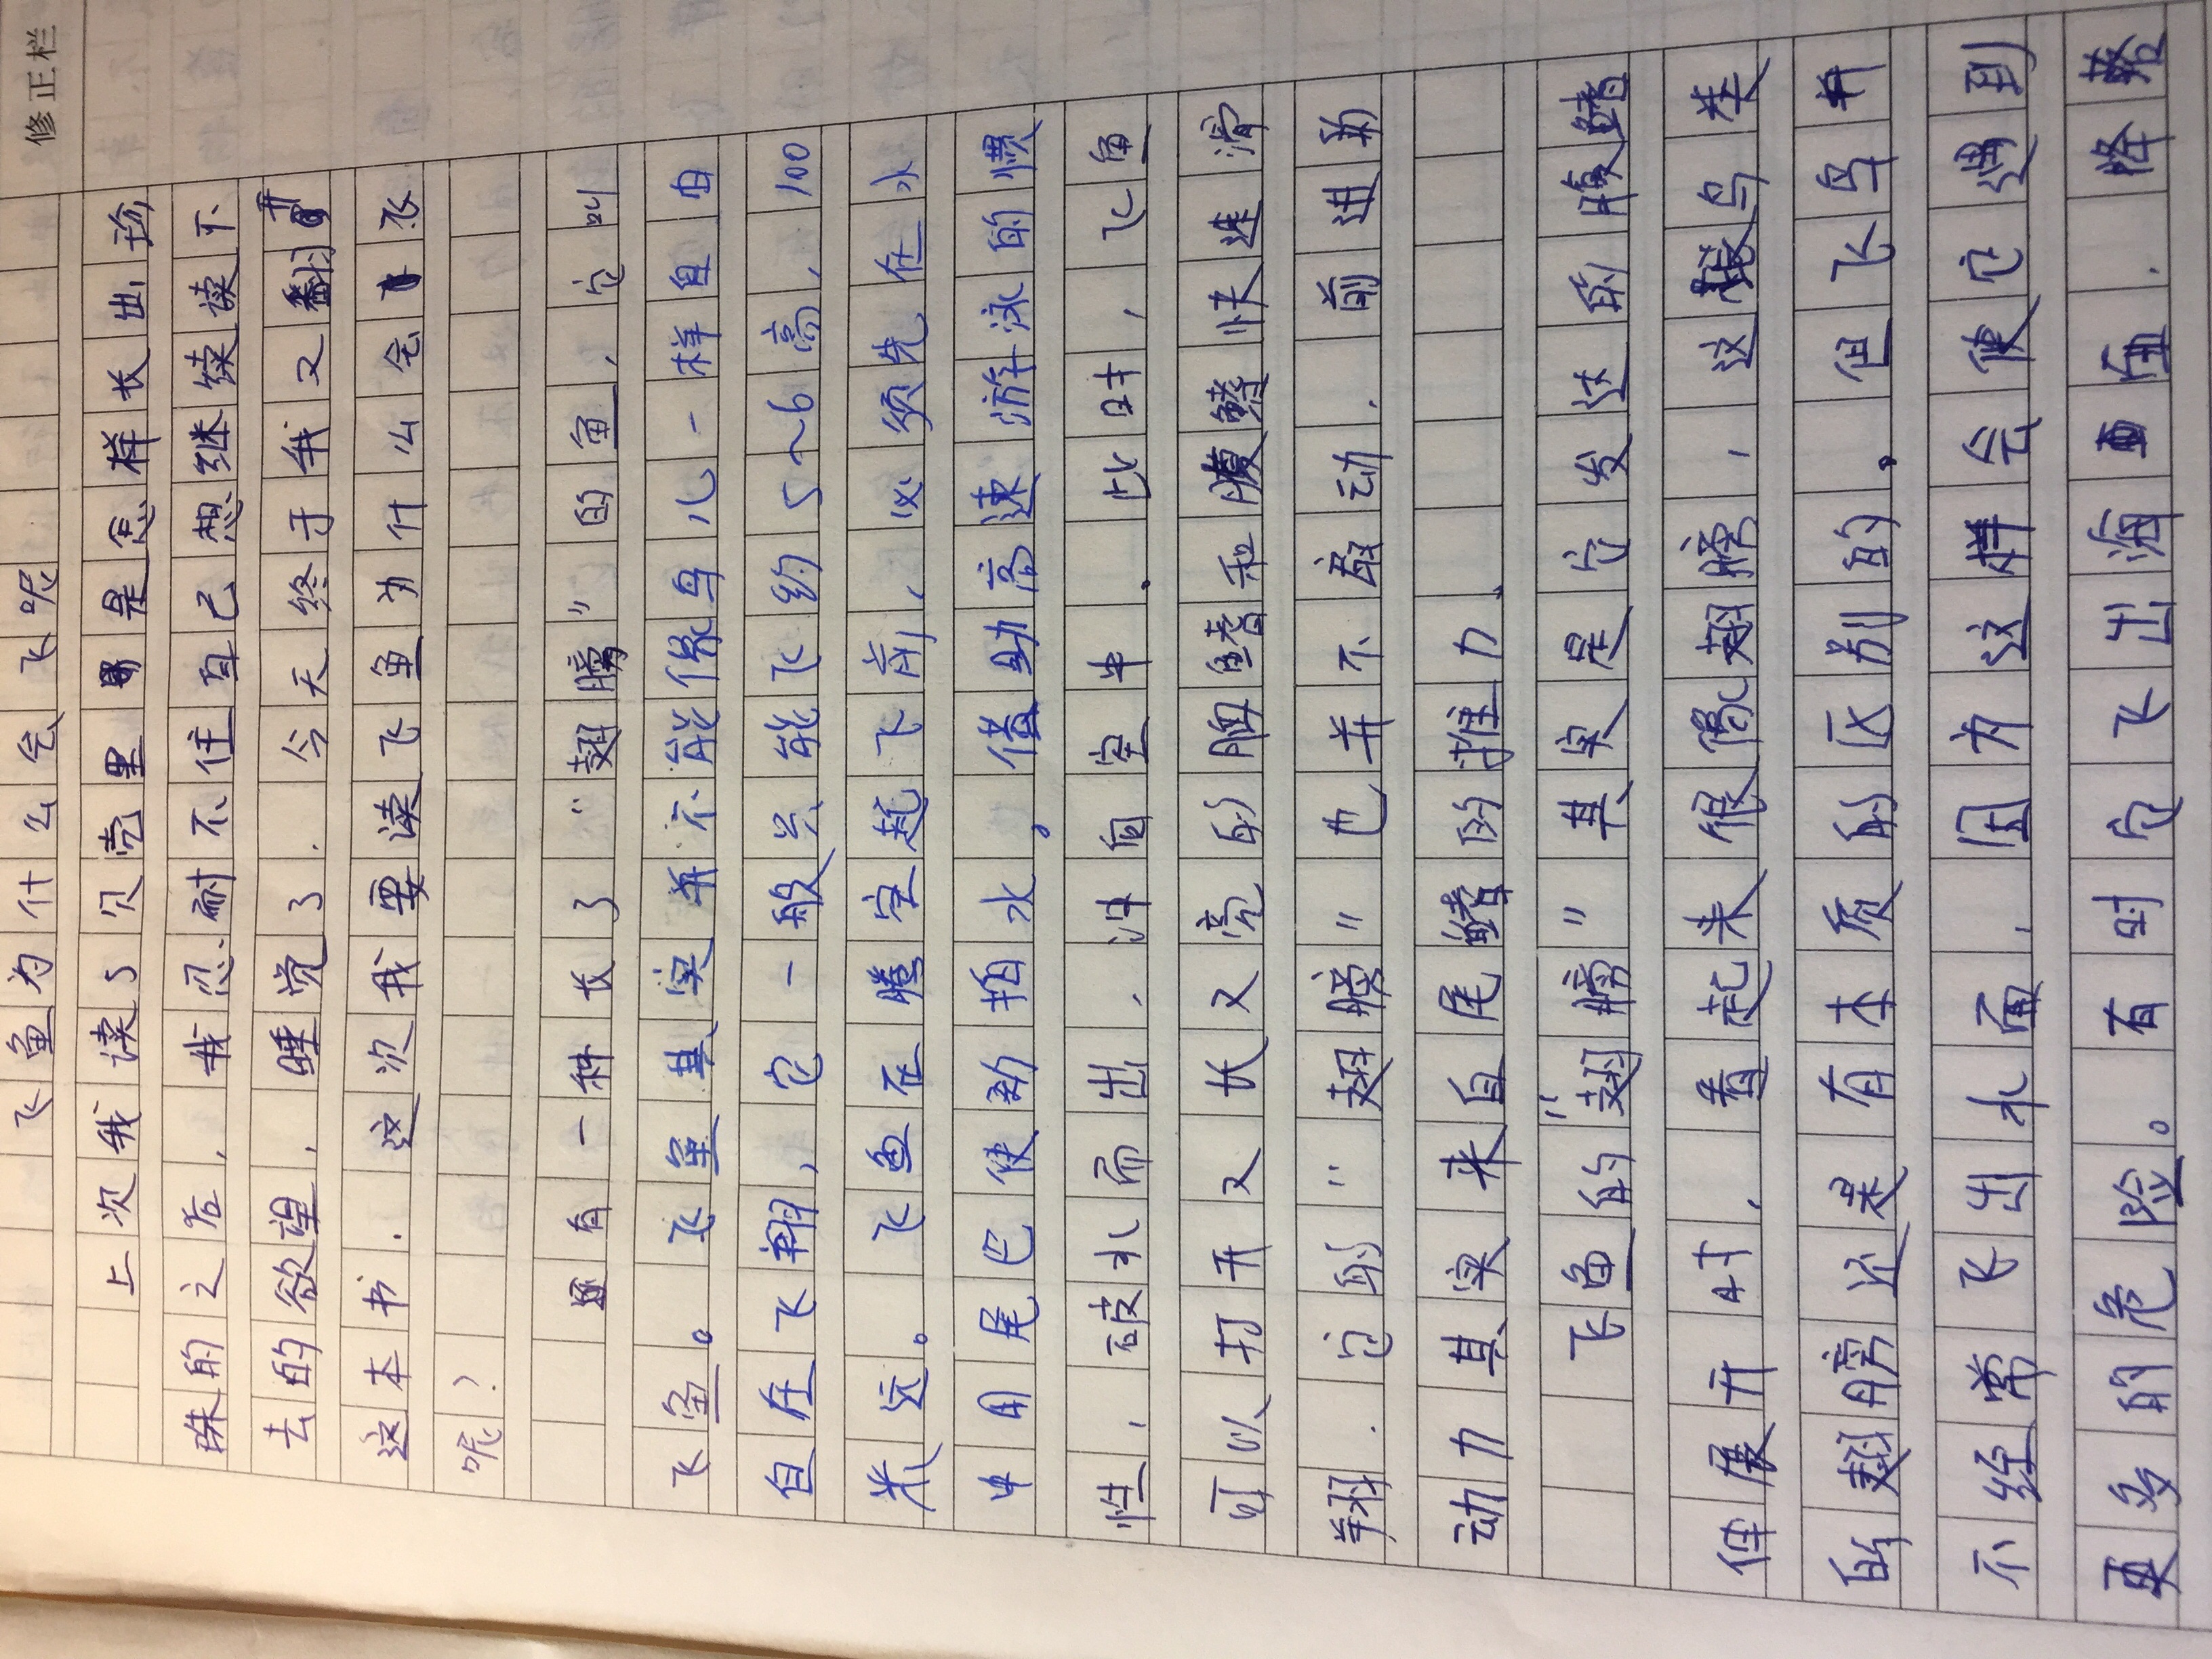 修正栏
飞鱼为什么会飞呢
上次我读了贝壳里是怎样长出珍
珠的之后，我忍耐不住自己想继续读下
去的欲望，睡觉了．今天终于我又翻开
这本书．这次我要读飞鱼为什么会飞
呢？
还有一种长了“翅膀”的鱼，它叫
飞鱼。飞鱼其实并不能像鸟儿一样自由
自在飞翔，它一般只能飞约5～6高，100
米远。飞鱼在腾空起飞前，必须先在水
中用尾巴使劲拍水，借助高速游泳的惯
性，破水而出，冲向空中．此时，飞鱼
可以打开又长又亮的胸鳍和腹鳍快速滑
翔．它的“翅膀”也并不扇动．前进的
动力其实来自尾鳍的推力．
飞鱼的“翅膀”其实是它发达的腹鳍
但展开时，看起来很像翅膀，这跟鸟类
的翅膀还是有本质的区别的。但飞鸟并
不经常飞出水面，因为这样会使它遇到
更多的危险。有时它飞出海面．降落